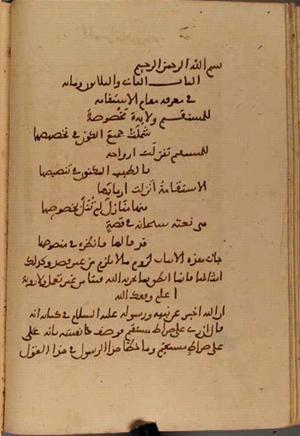 بسم الله الرحمن الرحيم
الباب الثاني والثلاثون ومائة
في معرفة مقام الاستقامة
للمستقيم ولاية مخصوصة
شملت جميع الكون في تخصيصها
للمستقيم تنزلت ارواحه
بالطيب المكنون في تنصيصها
الاستقامة انزلت اربابها
منها منازل لم تنل بخصوصها
هي نعته سبحانه في قصة
قد قالها فانظره في منصوصها
جات هذه الابيات لزوم ما لا يلزم من غير قصد وكذلك
امثالها فانما انطق بما يجريه الله فينا من غير تعمل ولا روية
اعلم وفقك الله
ان الله اخبر عن نبيه ورسوله عليه السلام في كتابه انه
قال ان ربي على صراط مستقيم فوصف نفسه بانه على
صراط مستقيم وما خطا هذا الرسول في هذا القول